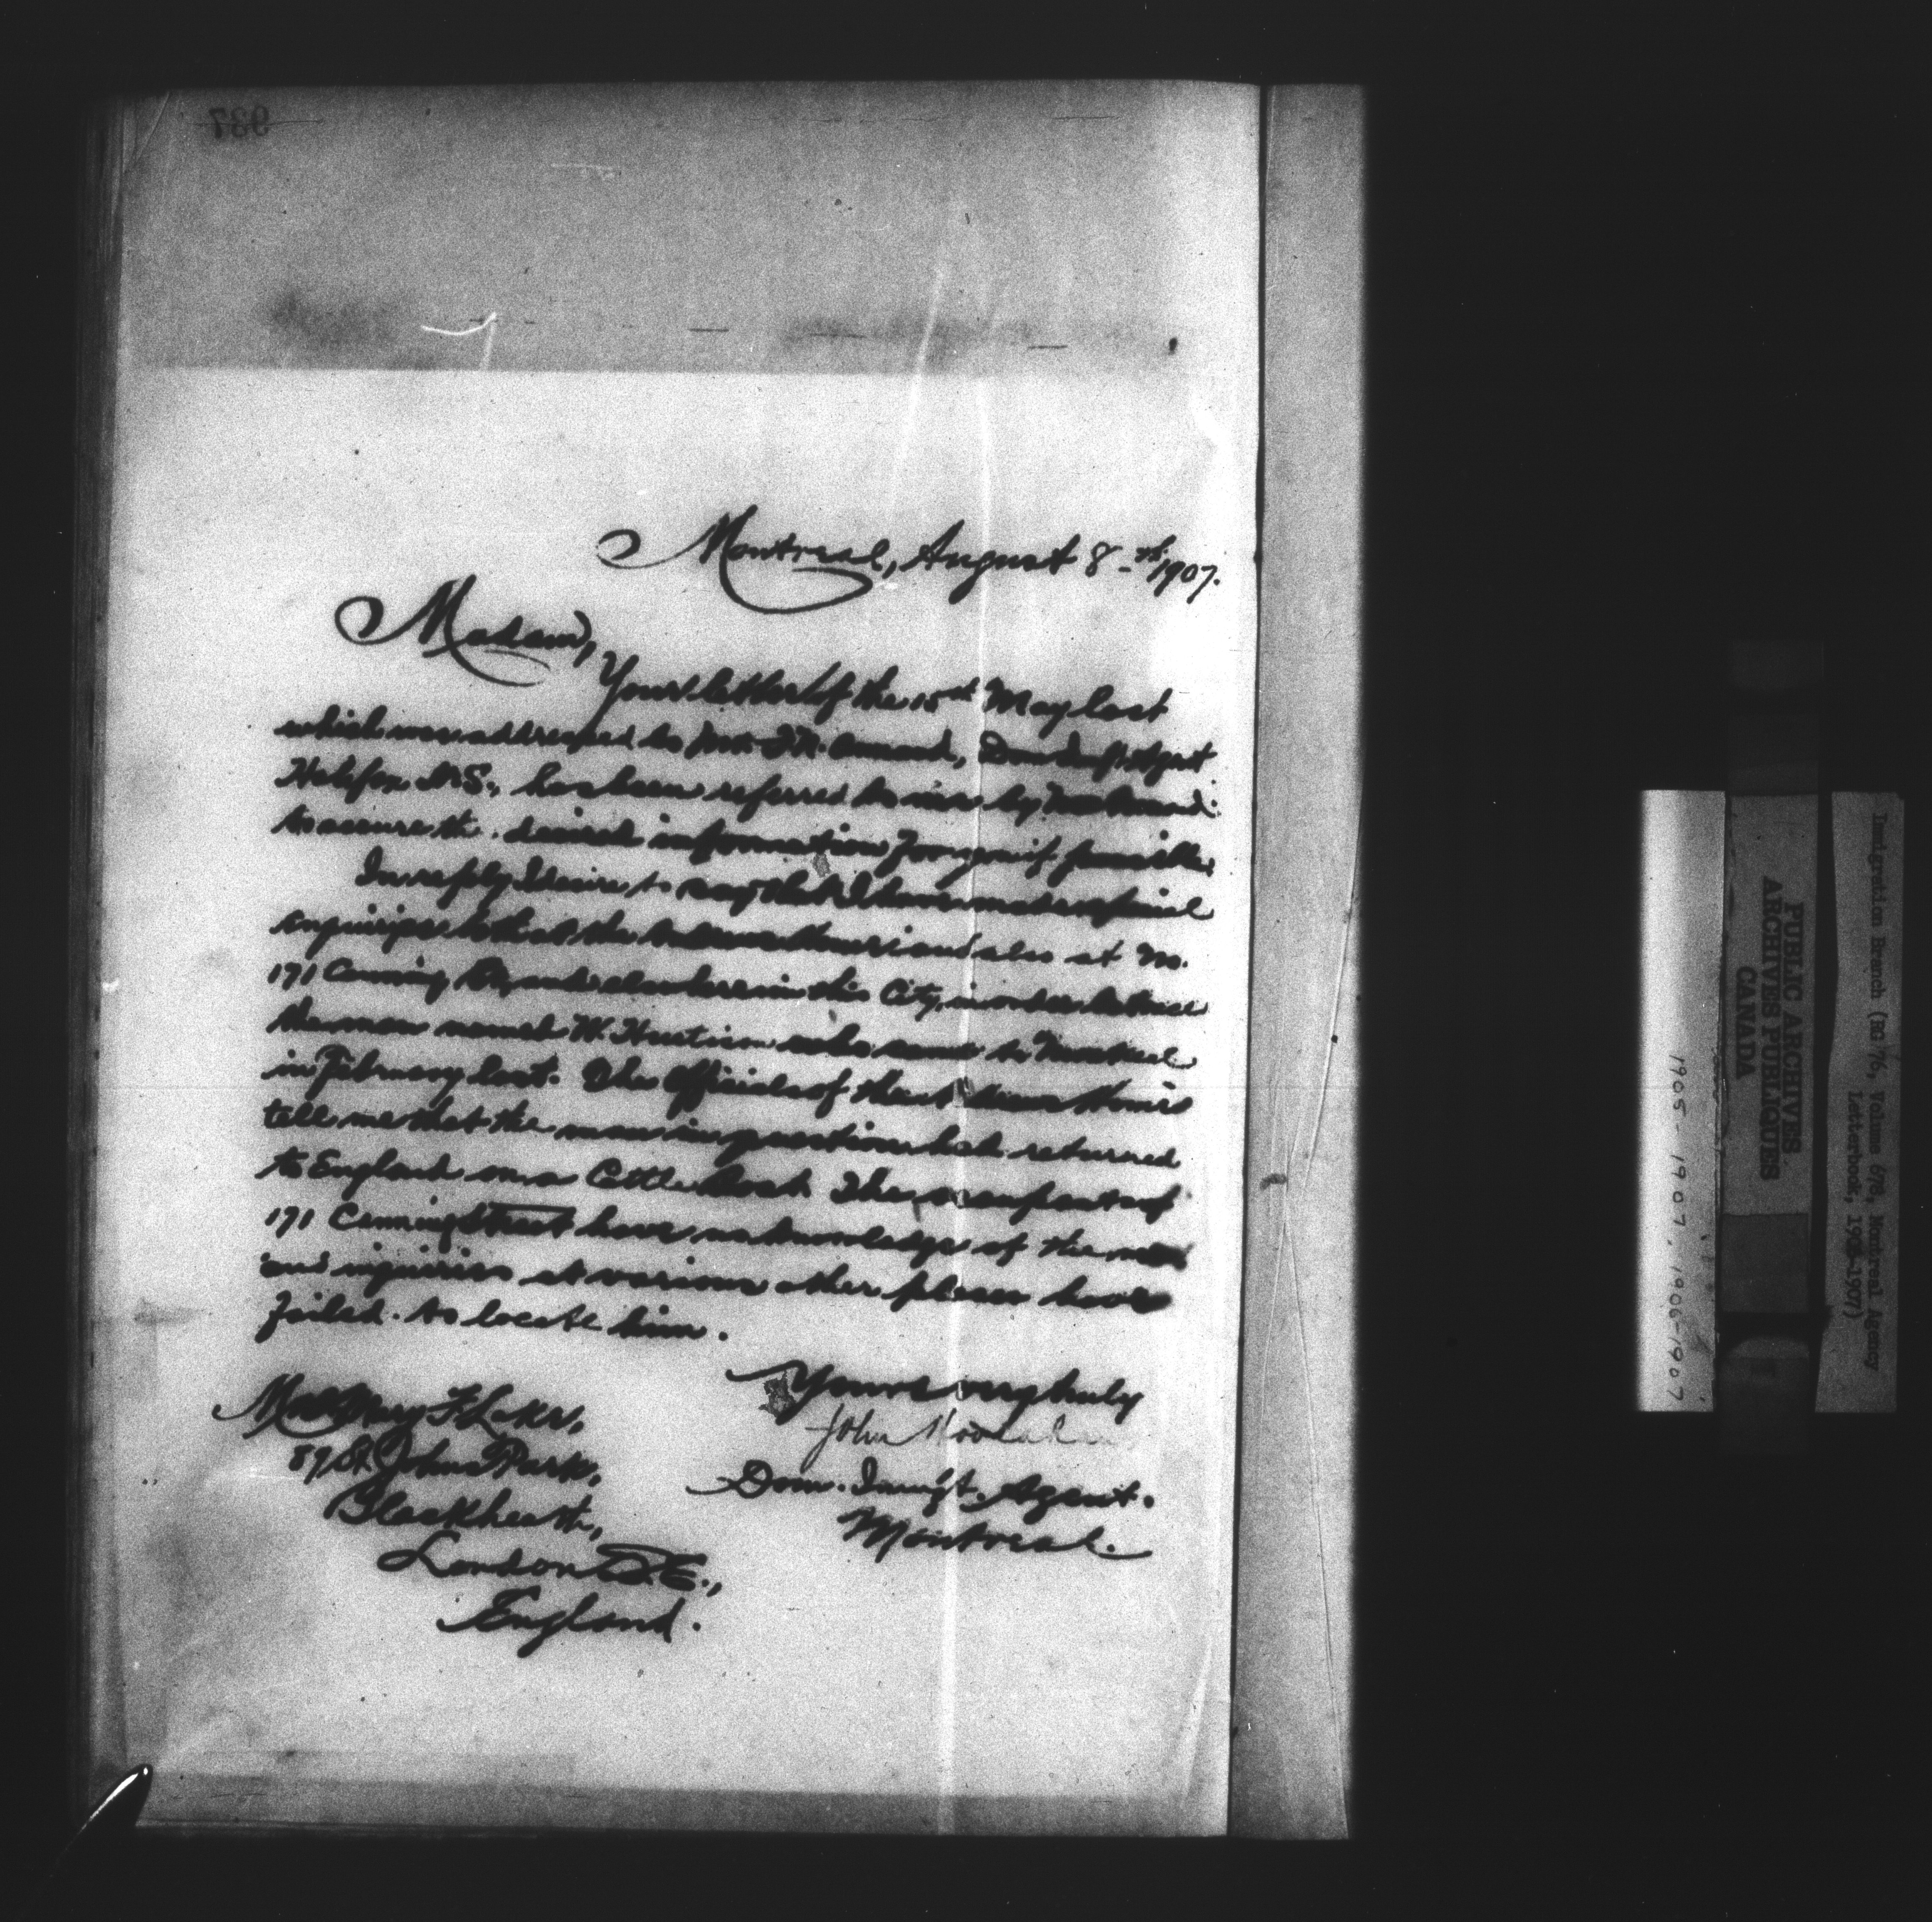 937
Montreal, August 8-th, 1907.
Madam,
Your letter of the 15th May last
which was addressed to Mr. Annand, Dom. Agent
Halifax N.S., has been referred to me by Mr. Annand
to secure the desired information for you if possible.
In reply I desire to say that I have made special
inquiries at the and also at No.
171 Cuming St, and elsewhere in this City, in order to trace
the man named W. who came to Montreal
in February last. The Officials of the Home
tell me that the man in question had returned
to England on a Cattle Boat. The occupants of
171 Cuming Street have no knowledge of the man
and inquiries at various other places have
failed to locate him.
Yours very truly
John Hoolahan
Dom. Immg't. Agent.
Montreal.
Mary F. Laker,
87 St. Johns Park,
Blackheath,
London S.E.,
England.
Immigration Branch (RG 76, Volume 678, Montreal Agency
Letterbook, 1905-1907)
PUBLIC ARCHIVES
ARCHIVES PUBLIQUES
CANADA
1905-1907, 1906-1907